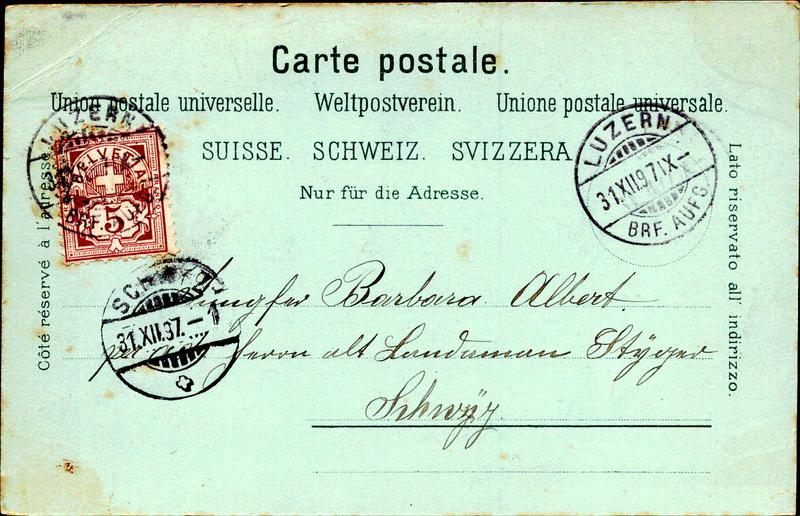 Carte postale.
Union postale universelle. Weltpostverein. Unione postale universale.
SUISSE. SCHWEIZ. SVIZZERA
Nur für die Adresse.
Côté réservé à l'adresse
Lato riservato all' indirizzo.
LUZERN
HELVETIA
5
BRF.
LUZERN
31.XII.97.IX—
BRF. AUFG.
31.XII.97.—
Jungfer Barbara Albert
Herrn alt Landaman Stÿger
Schwÿz.